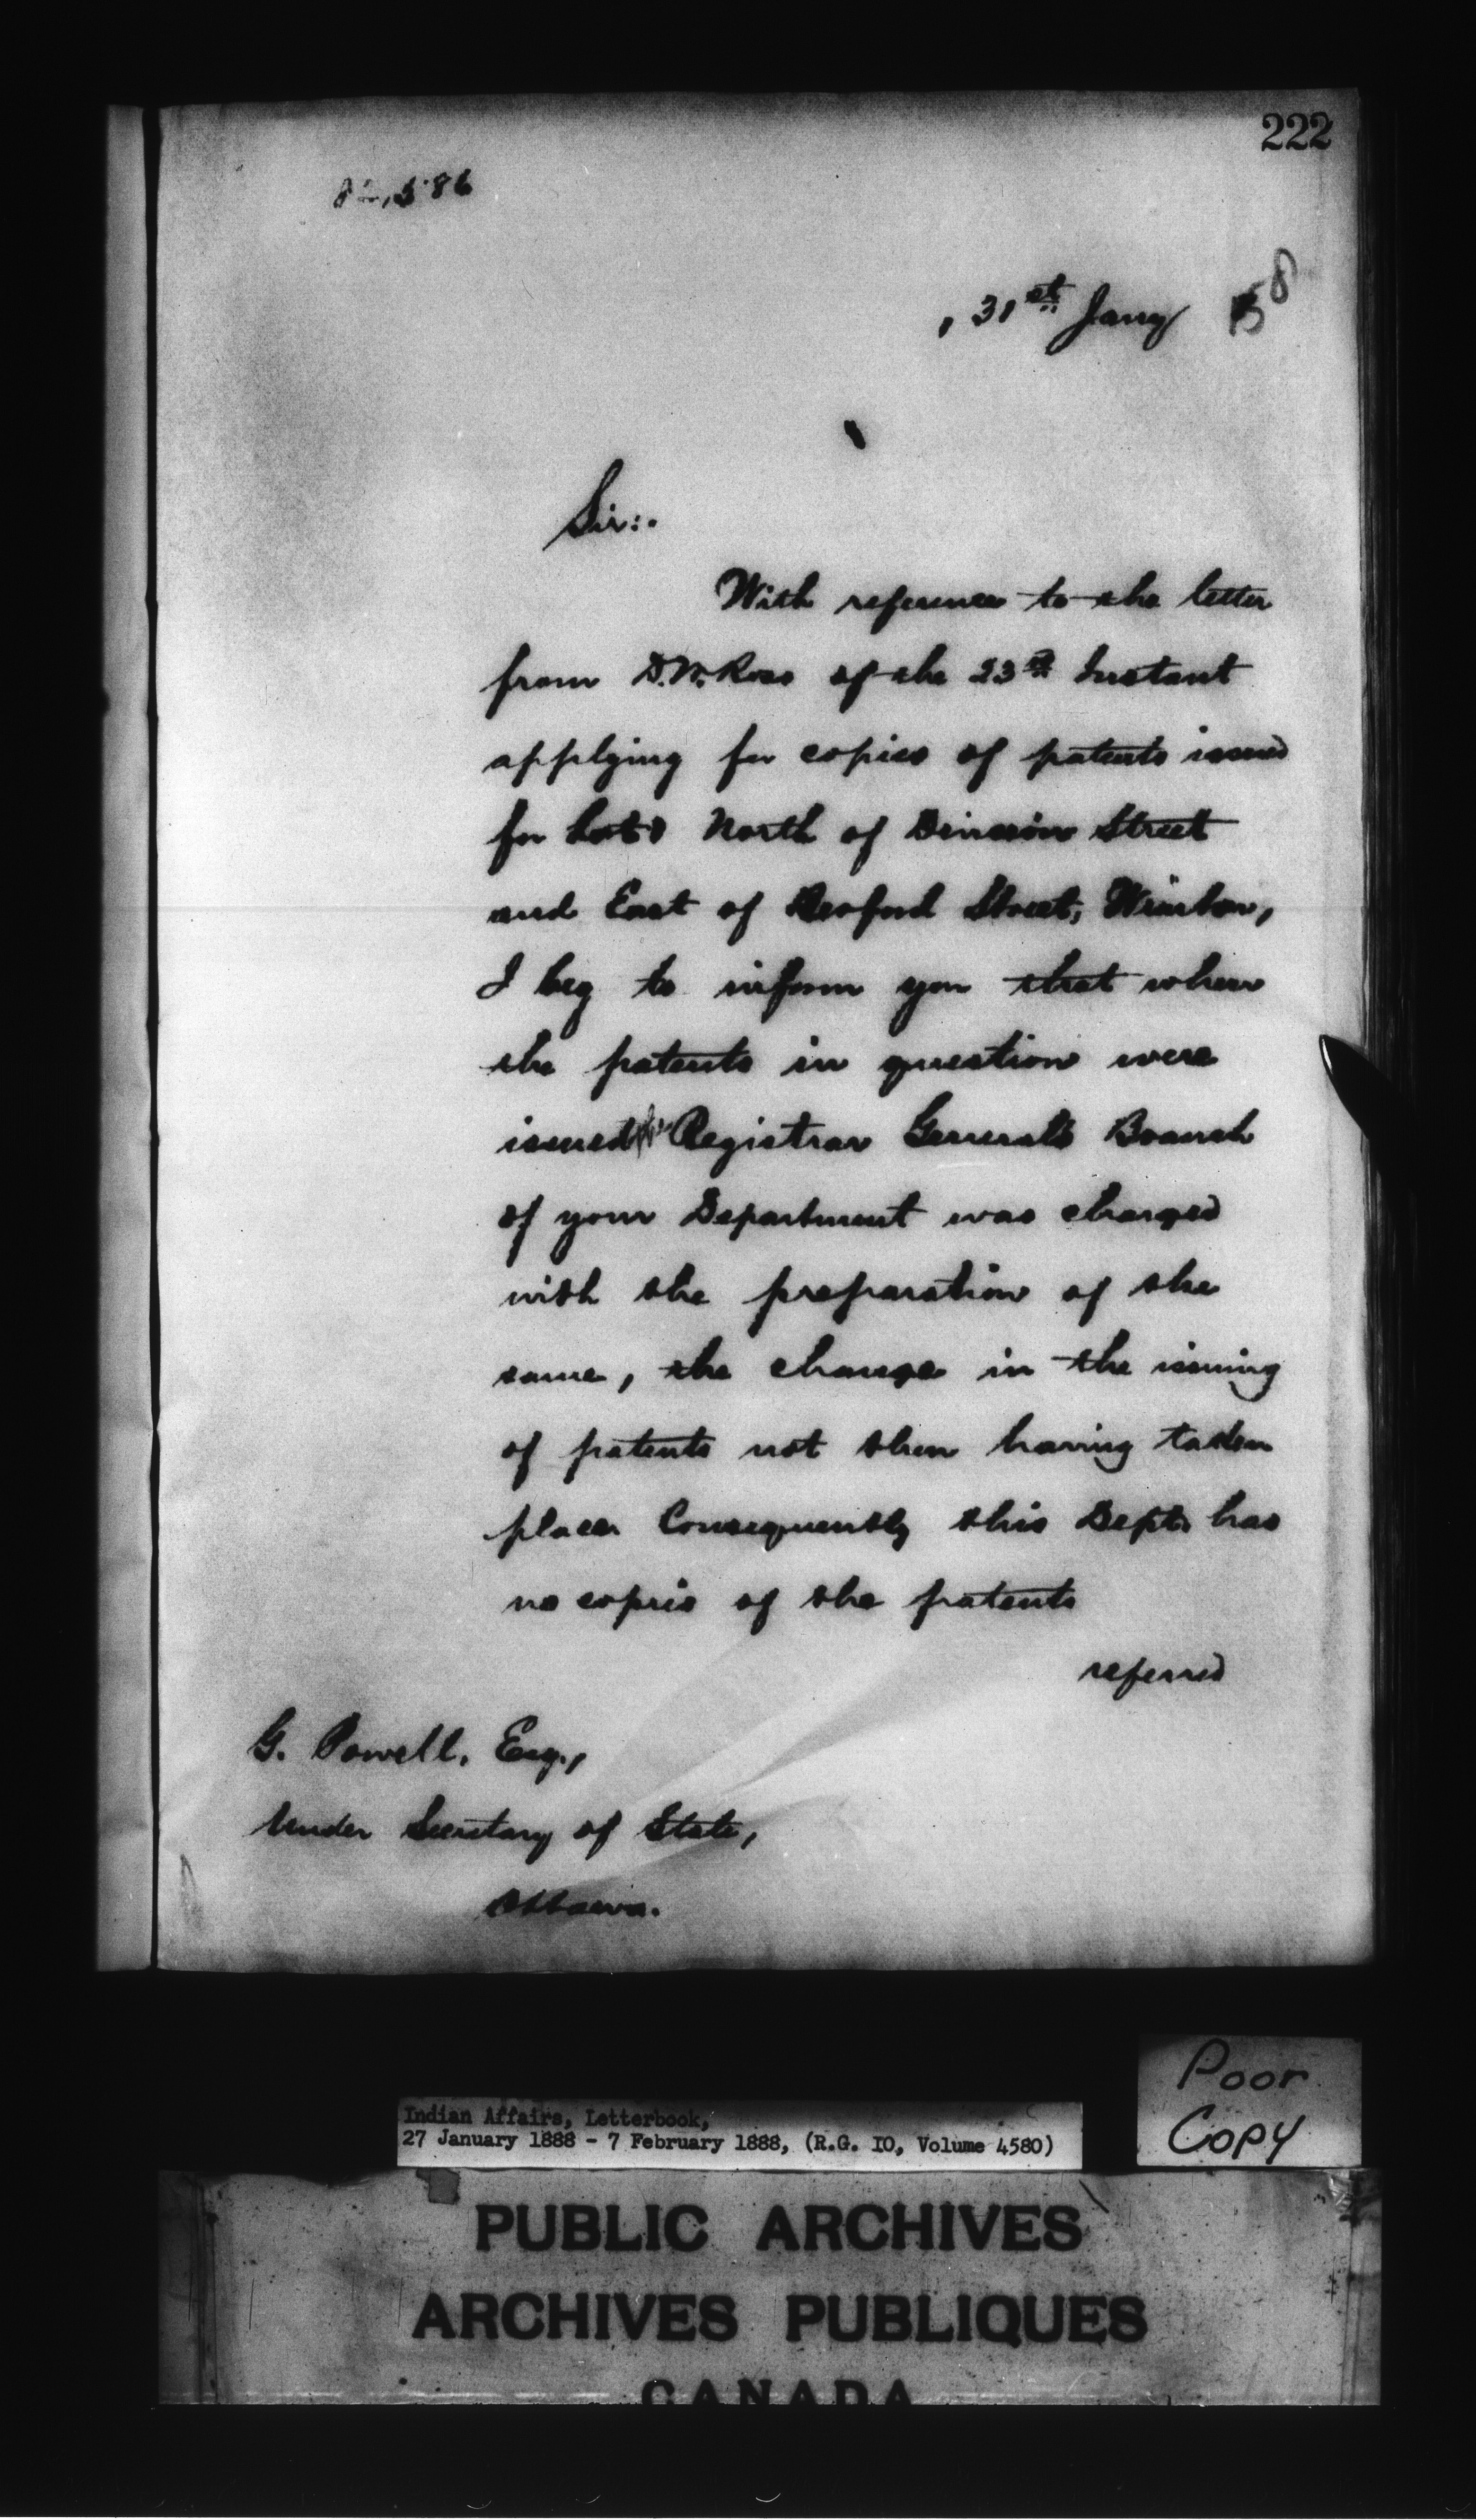 222
, 31st Jany 88
Sir:.
With reference to the letter
from D.W. Ross of the 23rd Instant
applying for copies of patents issued
for Lots North of Division Street
and East of Street, Wiarton,
I beg to inform you that when
the patents in question were
issued the Registrar General's Branch
of your Department was charged
with the preparation of the
same, the change in the issuing
of patents not then having taken
place. Consequently this Dept. has
no copies of the patents
referred
G. Powell, Esq.,
Under Secretary of State,
Ottawa.
Poor
Copy
Indian Affairs, Letterbook,
27 January 1888 - 7 February 1888, (R.G. IO, Volume 4580)
PUBLIC ARCHIVES
ARCHIVES PUBLIQUES
CANADA